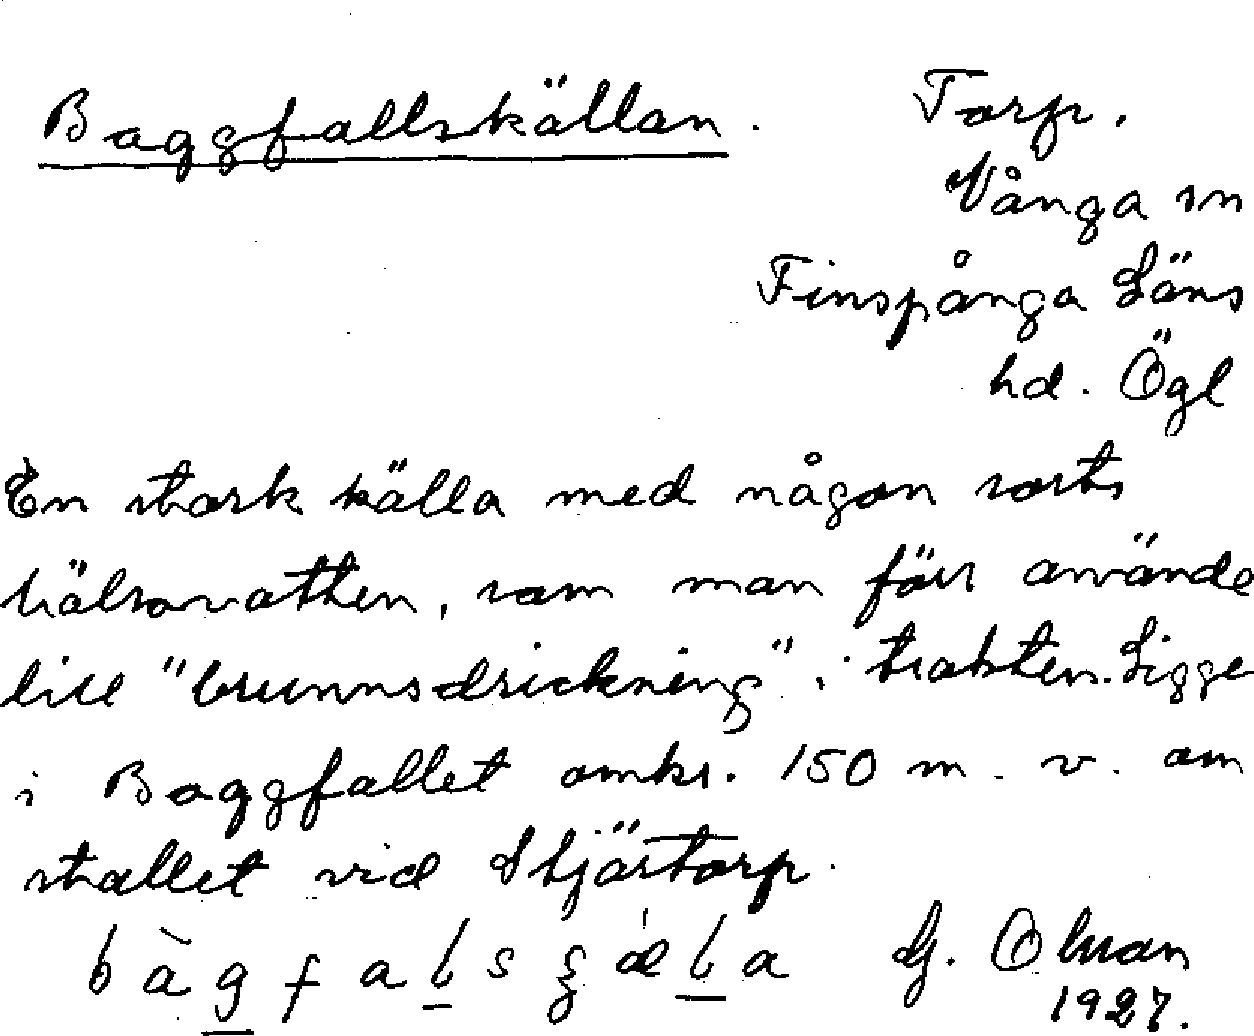 Baggfallskällan. Torp.
Vånga sn
Finspånga Läns
hd. Ögl
En stark källa med någon sorts
hälsovatten, som man förr använde
till "brunnsdrickning" i trakten. Ligge
i Baggfallet omkr. 150 m. v. om
stallet vid Stjärtorp.
G. Olsson
1927.